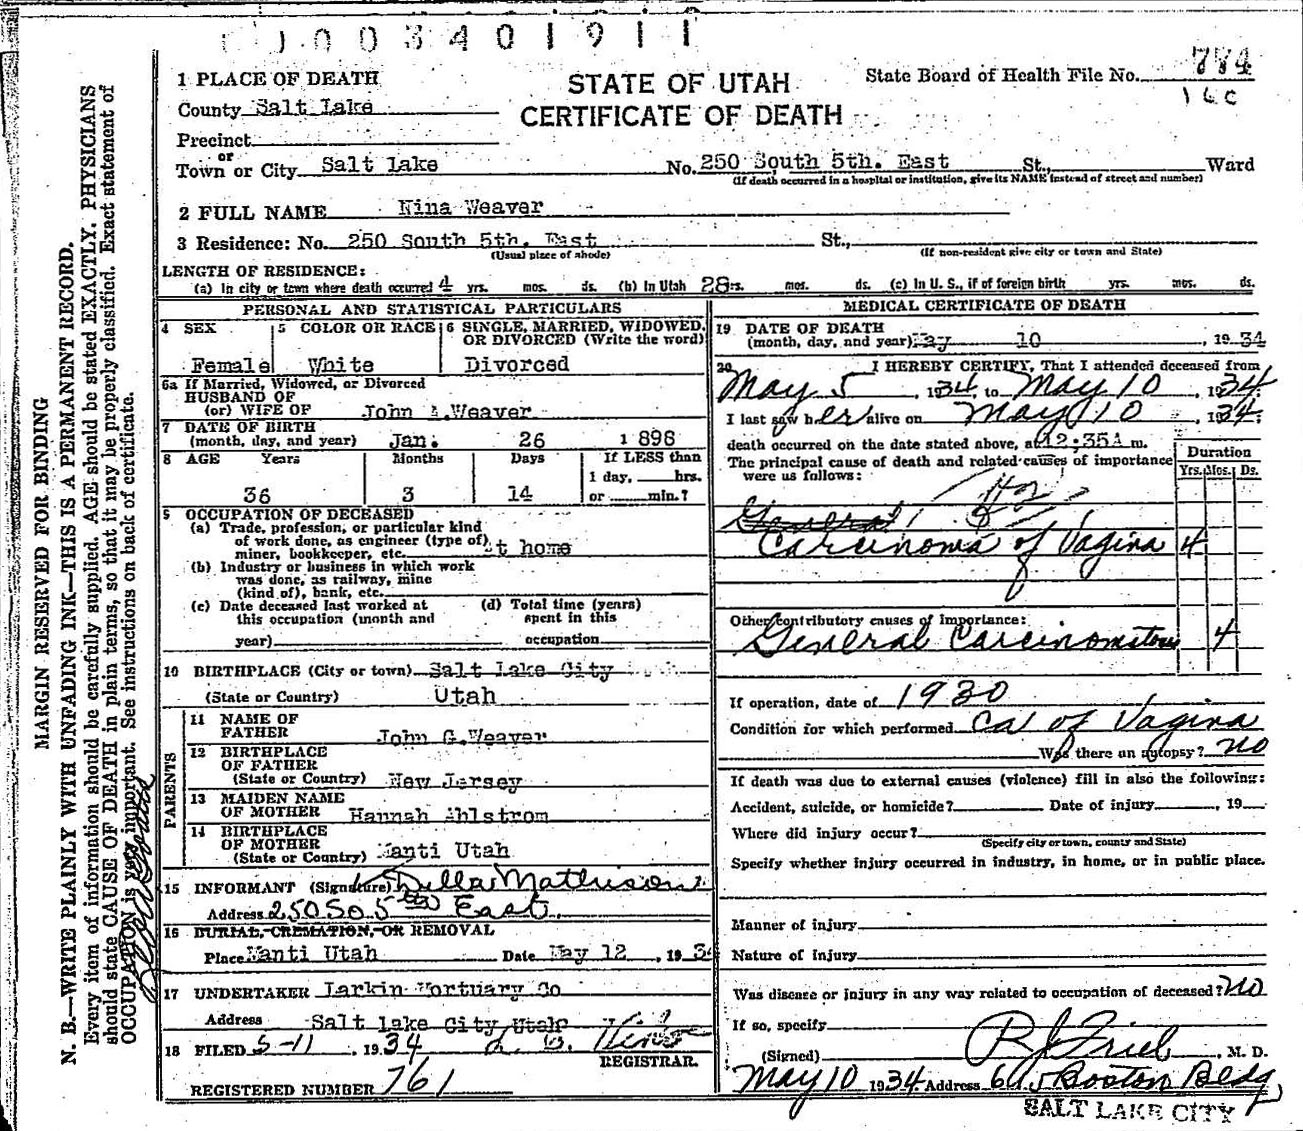 0003401911
1 PLACE OF DEATH
STATE OF UTAH
CERTIFICATE OF DEATH
State Board of Health File No. 774
160
County Salt Lake
Precinct
or
Town or City Salt Lake No. 250 South 5th. East St., Ward
(If death occurred in a hospital or institution, give its NAME instead of street and number)
2 FULL NAME Nina Weaver
3 Residence: No. 250 South 5th. East St.,
(Usual place of abode) (If non-resident give city or town and State)
LENGTH OF RESIDENCE:
(a) In city or town where death occurred 4 yrs. mos. ds. (b) In Utah 28 rs. mos. ds. (c) In U. S., if of foreign birth yrs. mos. ds.
PERSONAL AND STATISTICAL PARTICULARS
4 SEX 5 COLOR OR RACE 6 SINGLE, MARRIED, WIDOWED,
OR DIVORCED (Write the word)
Female White Divorced
6a If Married, Widowed, or Divorced
HUSBAND OF
(or) WIFE OF John A.Weaver
7 DATE OF BIRTH
(month, day, and year) Jan. 26 1898
8 AGE Years Months Days If LESS than
1 day, hrs.
36 3 14 or min.?
9 OCCUPATION OF DECEASED
(a) Trade, profession, or particular kind
of work done, as engineer (type of)
miner, bookkeeper, etc. At home
(b) Industry or business in which work
was done, as railway, mine
(kind of), bank, etc.
(c) Date deceased last worked at (d) Total time (years)
this occupation (month and spent in this
year) occupation
10 BIRTHPLACE (City or town) Salt Lake City
(State or Country) Utah
PARENTS
11 NAME OF
FATHER John G.Weaver
12 BIRTHPLACE
OF FATHER
(State or Country) New Jersey
13 MAIDEN NAME
OF MOTHER Hannah Ahlstrom
14 BIRTHPLACE
OF MOTHER
(State or Country) Manti Utah
15 INFORMANT (Signature) Della Mathison
Address 250 So 5th East
16 BURIAL, CREMATION, OR REMOVAL
Place Manti Utah Date May 12, 1934
17 UNDERTAKER Larkin Mortuary Co
Address Salt Lake City Utah
18 FILED 5-11, 1934
REGISTRAR.
REGISTERED NUMBER 761
MEDICAL CERTIFICATE OF DEATH
19 DATE OF DEATH
(month, day, and year) May 10, 1934
20 I HEREBY CERTIFY, That I attended deceased from
May 5, 1934, to May 10, 1934
I last saw her alive on May 10, 1934;
death occurred on the date stated above, at 12:35A m.
The principal cause of death and related causes of importance
were us follows:
Duration
Yrs. Mos. Ds.
General
Carcinoma of Vagina 4
Other contributory causes of importance:
General Carcinomatous 4
If operation, date of 1930
Condition for which performed Ca of Vagina
Was there an autopsy? no
If death was due to external causes (violence) fill in also the following:
Accident, suicide, or homicide? Date of injury, 19
Where did injury occur?
(Specify city or town, county and State)
Specify whether injury occurred in industry, in home, or in public place.
Manner of injury
Nature of injury
Was disease or injury in any way related to occupation of deceased? no
If so, specify
(Signed) R J Friel, M. D.
May 10 1934 Address Boston Bldg
SALT LAKE CITY
MARGIN RESERVED FOR BINDING
N. B.—WRITE PLAINLY WITH UNFADING INK—THIS IS A PERMANENT RECORD.
Every item of information should be carefully supplied. AGE should be stated EXACTLY. PHYSICIANS
should state CAUSE OF DEATH in plain terms, so that it may be properly classified. Exact statement of
OCCUPATION is very important. See instructions on back of certificate.